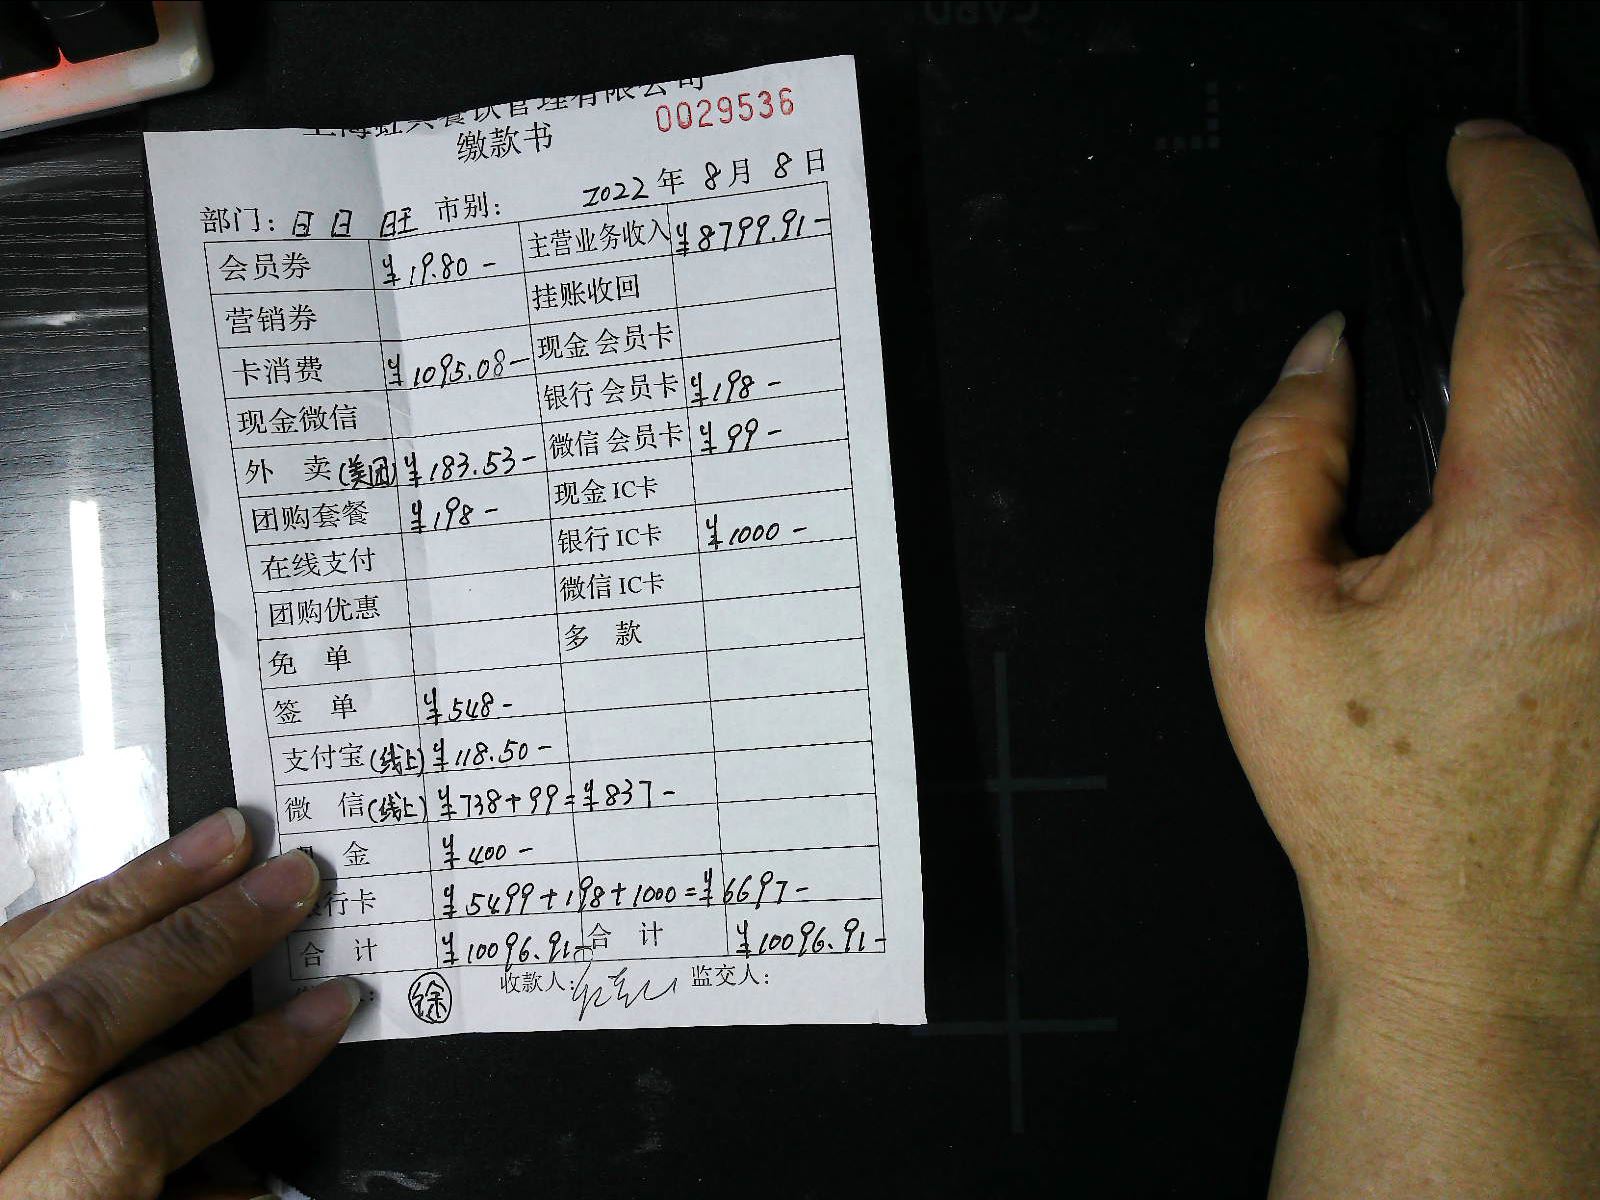 餐饮管理有限公司
0029536
缴款书
部门: 日日旺 市别: 2022年8月8日
会员券 ¥19.80- 主营业务收入 ¥8799.91-
营销券 挂账收回
卡消费 ¥1095.08- 现金 会员卡
现金微信 银行 会员卡 ¥198-
外 卖(美团) ¥183.53- 微信 会员卡 ¥99-
团购套餐 ¥198- 现金 IC卡
在线支付 银行 IC卡 ¥1000-
团购优惠 微信 IC卡
免 单 多 款
签 单 ¥548-
支付宝(线上) ¥118.50-
微 信(线上) ¥738+99=¥837-
金 ¥400-
行卡 ¥5499+198+1000=¥6697-
合 计 ¥10096.91- 合 计 ¥10096.91-
徐 收款人: 监交人: